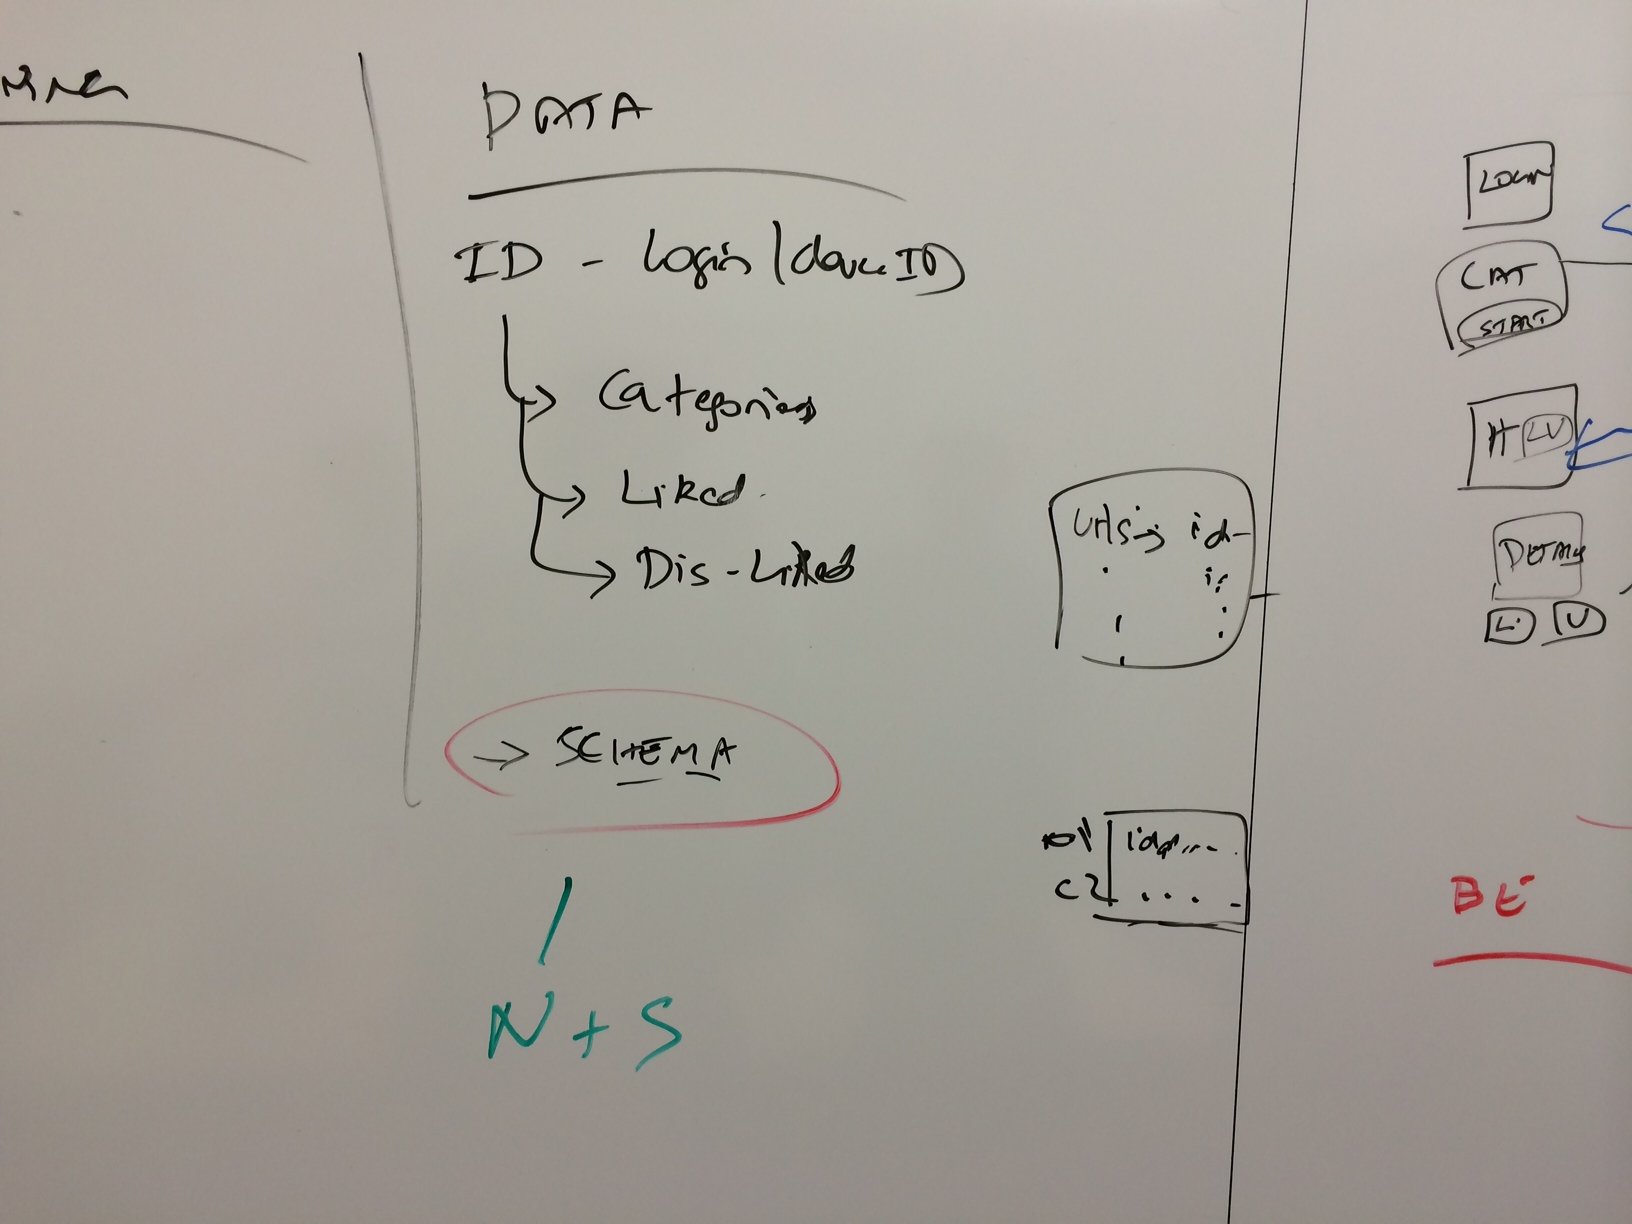 DATA
ID - Login / device ID
Categories
Liked
Dis-Liked
→ SCHEMA
N + S
urls → id
C2
LOGIN
CAT
START
H LV
DETAILS
Li U
BE